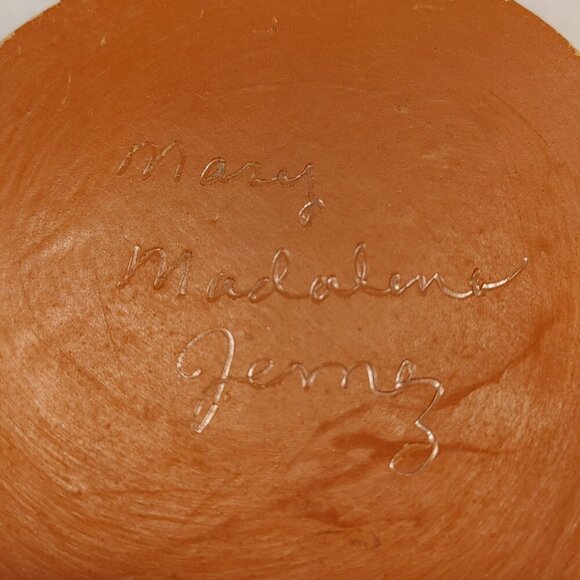 Mary
Madalena
Jemez